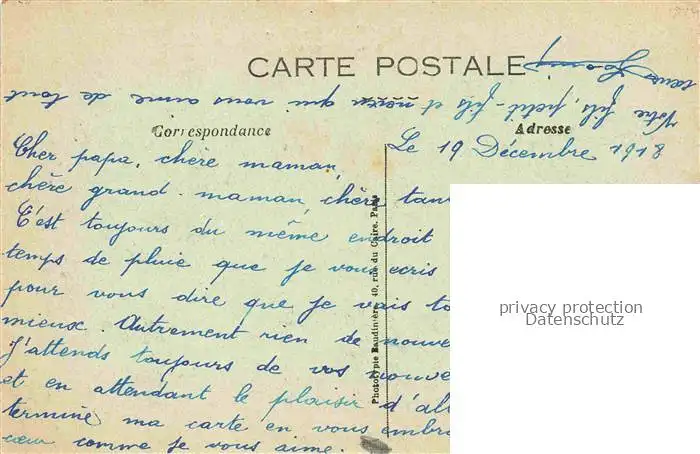 CARTE POSTALE
Correspondance
Adresse
Le 19 Décembre 1918
Cher papa, chère maman,
chère grand-maman, chère tan
C'est toujours du même endroit
temps de pluie que je vous ecris
pour vous dire que je vais to
mieux. Autrement rien de nouve
J'attends toujours de vos nouve
et en attendant le plaisir d'al
termine ma carte en vous embra
cœur comme je vous aime.
Votre fils, petit-fils et neveu qui vous aime de tout
cœur
Phototypie Baudinière, 40, rue du Caire, Paris
privacy protection
Datenschutz